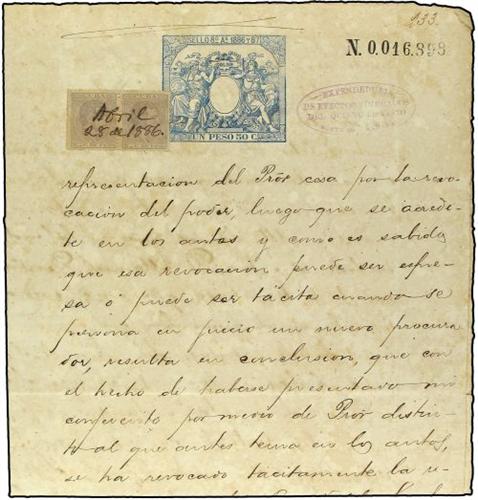 233.
SELLO 8º Aº 1886 Y 87
N. 0,016,898
UN PESO 50 C.
EXPENDEDURIA
DE EFECTOS TIMBRADOS
Abril
28 de 1886.
representacion del Prór cesa por la revo-
cacion del poder, luego que se acredi-
te en los autos y como es sabido
que esa revocacion puede ser espre-
sa ó puede ser tácita cuando se
persona en juicio un nuevo procura
dor, resulta en conclusion, que con
el hecho de haberse presentado mi
conferente por medio de Prór distin-
to al que antes tenia en los autos,
se ha revocado tacitamente la re-